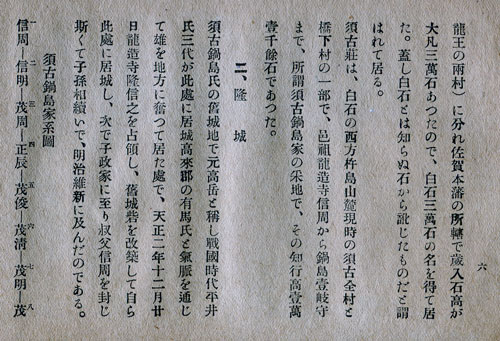 六
龍王の兩村）に分れ佐賀本藩の所轄で歲入石高が
大凡三萬石あつたので、白石三萬石の名を得て居
た。蓋し白石とは知らぬ石から訛じたものだと謂
はれて居る。
須古莊は、白石の西方杵島山麓現時の須古全村と
橋下村の一部で、邑祖龍造寺信周から鍋島壹岐守
まで、所謂須古鍋島家の采地で、その知行高壹萬
壹千餘石であつた。
二、隆城
須古鍋島氏の舊城地で元高岳と稱し戰國時代平井
氏三代が此處に居城高來郡の有馬氏と氣脈を通じ
て雄を地方に奮つて居た處で、天正二年十二月廿
日龍造寺隆信之を占領し、舊城砦を改築して自ら
此處に居城し、次で子政家に至り叔父信周を封じ
斯くて子孫相續いで、明治維新に及んだのである。
須古鍋島家系圖
一信周―二信明―三茂周―四正辰―五茂俊―六茂清―七茂明―八茂